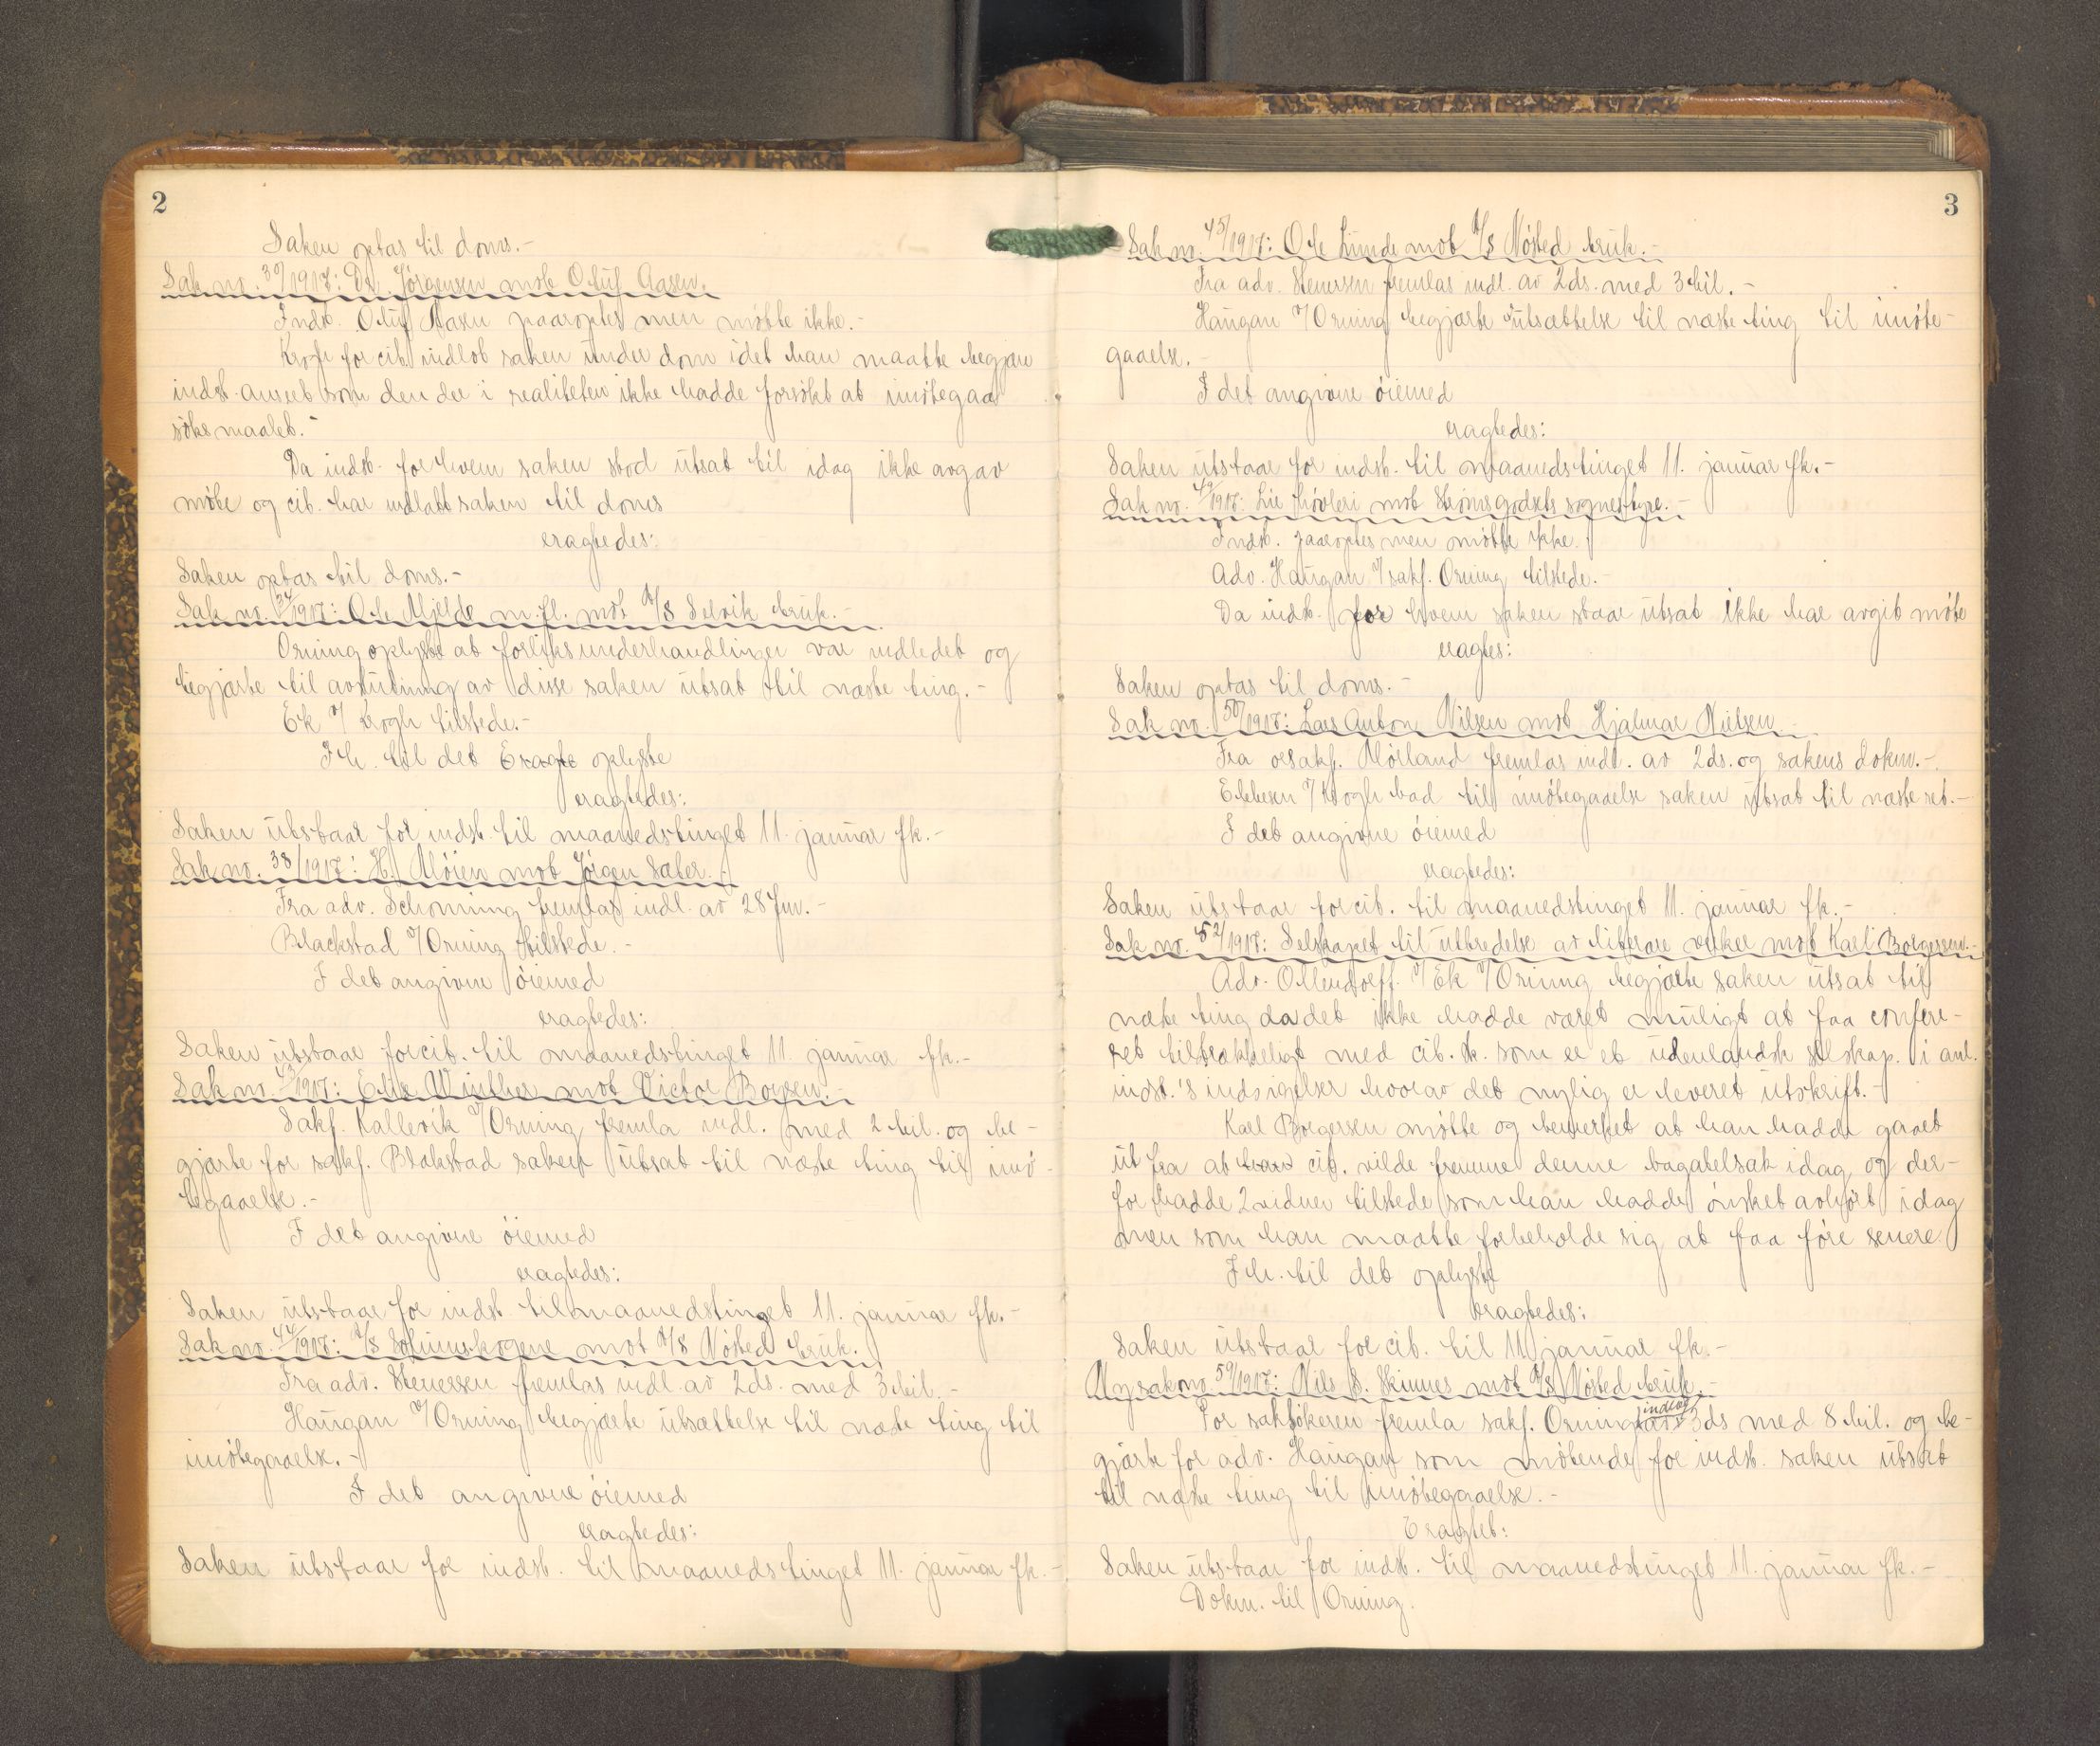 2
Saken optas til doms.-
Sak nr. 30/1917: Dr. Jørgensen mot Oluf Aasen.
Indst. Oluf Aasen paaroptes men møtte ikke.-
Krogh for cit. indlot saken under dom idet han maatte begjære
indst. anseet som den der i realiteten ikke hadde forsøkt at imøtegaa
søksmaalet.-
Da indst. for hvem saken stod utsat til idag ikke avgav
møte og cit. har indlatt saken til doms
eragtedes:
Saken optas til doms.-
Sak nr. 34/1917: Ole Mjelde m.fl. mot A/S Selvik bruk.-
Orning oplyste at forliksunderhandlinger var indledet og
begjærte til avslutning av disse saken utsat til næste ting.-
Ek o/ Krogh tilstede.-
I h. til det Eragte oplyste
eragtedes:
Saken utstaar for indst. til maanedstinget 11. januar fk.-
Sak nr. 38/1917: H. Moien mot Jørgen Sæter.-
Fra adv. Schønning fremlas indl. av 28 Juv.-
Blackstad o/ Orning tilstede.-
I det angivne øiemed
eragtedes:
Saken utstaar for cit. til maanedstinget 11. januar fk.-
Sak nr. 43/1917: Elise Winther mot Victor Boysen.-
Sakf. Kallevik o/ Orning fremla indl. med 2 bil. og be-
gjærte for sakf. Blakstad saken utsat til næste ting til imø-
tegaaelse.-
I det angivne øiemed
eragtedes:
Saken utstaar for indst. til maanedstinget 11. januar fk.-
Sak nr. 44/1917: A/S Solumskogene mot A/S Nøsted bruk.
Fra adv. Stenersen fremlas indl. av 2ds. med 3 bil.-
Haugan o/ Orning begjærte utsættelse til næste ting til
imøtegaaelse.-
I det angivne øiemed
eragtedes:
Saken utstaar for indst. til maanedstinget 11. januar fk.-
3
Sak nr. 45/1917: Ole Lunde mot A/S Nøsted bruk.-
Fra adv. Stenersen fremlas indl. av 2ds. med 3 bil.-
Haugan o/ Orning begjærte utsættelse til næste ting til imøte-
gaaelse.-
I det angivne øiemed
eragtedes:
Saken utstaar for indst. til maanedstinget 11. januar fk.-
Sak nr. 49/1917: Lie høvleri mot Strømsgodsets sognestyre.-
Indst. paaroptes men møtte ikke.
Adv. Haugan o/ sakf. Orning tilstede.-
Da indst. for hvem saken staar utsat ikke har avgit møte
eragtes:
Saken optas til doms.-
Sak nr. 50/1917: Lars Anton Nilsen mot Hjalmar Nielsen.-
Fra orsakf. Mørland fremlas indl. av 2ds. og sakens dokum.-
Ebbesen o/ Krogh bad til imøtegaaelse saken utsat til næste ret.-
I det angivne øiemed
eragtedes:
Saken utstaar for cit. til maanedstinget 11. januar fk.-
Sak nr. 52/1917: Selskapet til utbredelse av literære verker mot Karl Borgersen.-
Adv. Ollendorff o/ Ek o/ Orning begjærte saken utsat til
næste ting da det ikke hadde været muligt at faa confere-
ret tilstrækkeligt med cit. sk. som er et udenlandsk selskap. i anl.
indst.'s indsigelser hvorav det nylig er leveret utskrift.-
Karl Borgersen møtte og bemerket at han hadde gaaet
ut fra at cit. vilde fremme denne bagatelsak idag og der-
for hadde 2 vidner tilstede som han hadde ønsket avhørt idag
men som han maatte forbeholde sig at faa føre senere.
I h. til det oplyste
eragtedes:
Saken utstaar for cit. til 11 januar fk.-
Ny sak nr. 59/1917: Nils S. Skinnes mot A/S Nøsted bruk.-
For saksøkeren fremla sakf. Orning indlæg av 3ds med 8 bil. og be-
gjærte for adv. Haugan som møtende for indst. saken utsat
til næste ting til imøtegaaelse.-
Eragtet:
Saken utstaar for indst. til maanedstinget 11. januar fk.-
Dokm. til Orning.